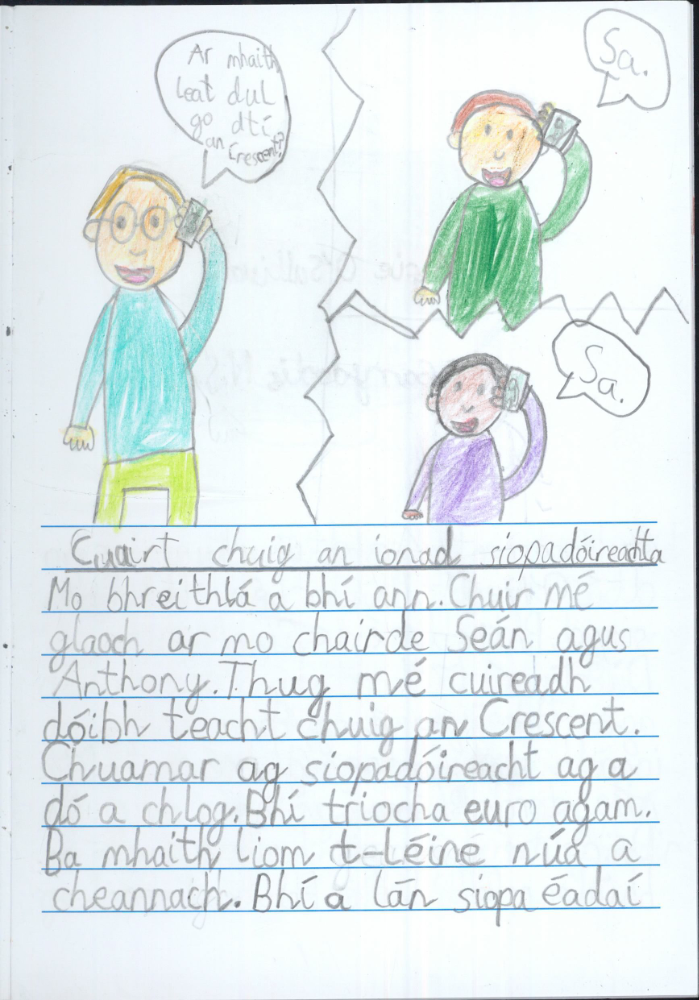 Ar mhaith
leat dul
go dtí
an Crescent?
Sa.
Sa.
Cuairt chuig an ionad siopadóireachta
Mo bhreithlá a bhí ann. Chuir mé
glaoch ar mo chairde Seán agus
Anthony. Thug mé cuireadh
dóibh teacht chuig an Crescent.
Chuamar ag siopadóireacht ag a
dó a chlog. Bhí triocha euro agam.
Ba mhaith liom t-léine núa a
cheannach. Bhí a lán siopa éadaí